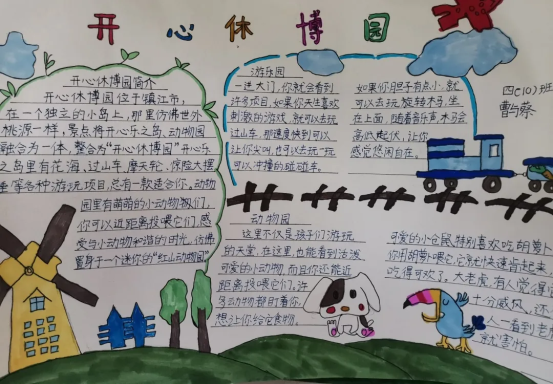 开心休博园
四(10)班
开心休博园简介
开心休博园位于镇江市,
在一个独立的小岛上,那里仿佛世外
桃源一样,景点将开心乐之岛、动物园
融合为一体,整合为“开心休博园”开心乐
之岛里有花海、过山车、摩天轮、惊险大摆
锤等各种游玩项目,总有一款适合你。动物
园里有萌萌的小动物,
你可以近距离投喂它们,感
受与小动物和谐的时光,仿佛
置身于一个迷你的“红山动物园”
游乐园
一进大门,你就会看到
许多项目,如果你天生喜欢
刺激的游戏,就可以去玩
过山车,那速度快到可以
让你尖叫,也可以去玩一玩
可以冲撞的碰碰车。
如果你胆子有点小,就
可以去玩旋转木马,坐
在上面,随着音乐,木马会
高低起伏,让你
感觉悠闲自在。
动物园
这里不仅是孩子们游玩
的天堂,在这里,也能看到活泼
可爱的小动物,而且你还能近
距离投喂它们,许
多动物都盯着你,
想让你给它食物。
可爱的小仓鼠特别喜欢吃胡萝卜
你用胡萝卜喂它,它就快速
吃得可欢了,大老虎,有人觉得它
十分威风,还
人一看到老
就害怕。